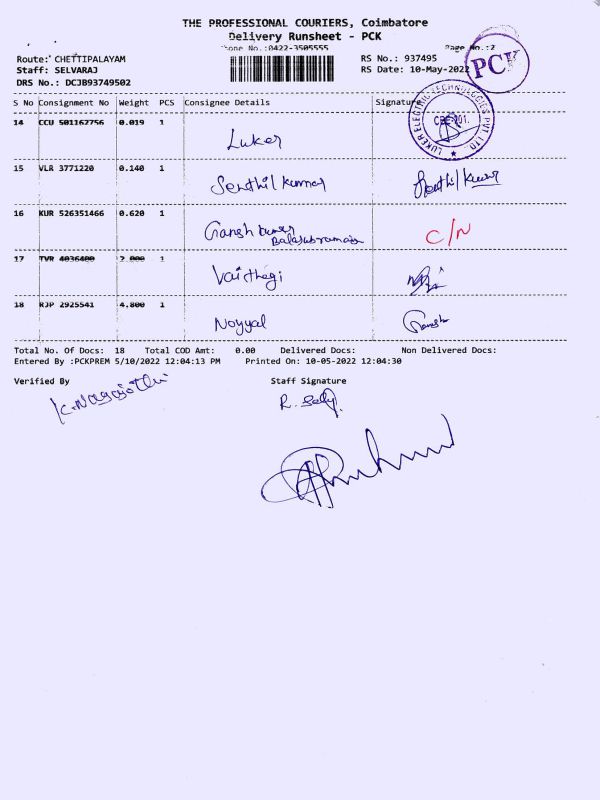 THE PROFESSIONAL COURIERS, Coimbatore
Delivery Runsheet - PCK
Phone No.:0422-3505555 Page No.:2
Route: CHETTIPALAYAM RS No.: 937495
Staff: SELVARAJ RS Date: 10-May-2022
DRS No.: DCJB93749502
PCK
S No Consignment No Weight PCS Consignee Details Signature
LUKER ELECTRIC TECHNOLOGIES PVT. LTD.
14 CCU 501162756 0.019 1 Luker
15 VLR 3771220 0.140 1 Senthil kumar Senthil kumar
16 KUR 526351466 0.620 1 Ganesh kumar Balasubramanian C/N
17 TVR 4036400 2.000 1 Vaithegi
18 RJP 2925541 4.800 1 Noyyal Ganesh
Total No. Of Docs: 18 Total COD Amt: 0.00 Delivered Docs: Non Delivered Docs:
Entered By :PCKPREM 5/10/2022 12:04:13 PM Printed On: 10-05-2022 12:04:30
Verified By Staff Signature
K. Nagajothi